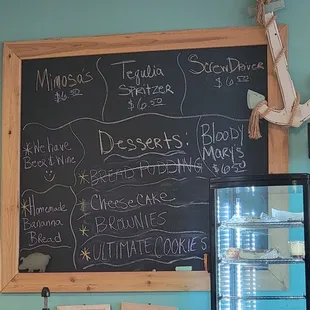 Mimosas
$6.50
Tequlia
Spritzer
$6.50
ScrewDriver
$6.50
*We have
Beer & Wine
Desserts:
*BREAD PUDDING
*CHEESECAKE
*BROWNIES
*ULTIMATE COOKIES
Bloody
Mary's
$6.50
*Homemade
Banana
Bread